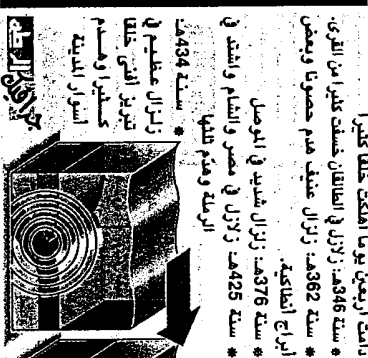 دامت أربعين يوما أهلكت خلقا كثيرا
* سنة 346هـ: زلازل في الطالقان خسفت كثيرا من القرى.
* سنة 362هـ: زلزال عنيف هدم حصونا وبعض
أبراج أنطاكية.
* سنة 376هـ: زلزال شديد في الموصل
* سنة 425هـ: زلازل في مصر والشام واشتد في
الرملة وهدم ثلثها
* سنة 434هـ:
زلزال عظيم في
تبريز أفنى خلقا
كثيرا وهدم
أسوار المدينة